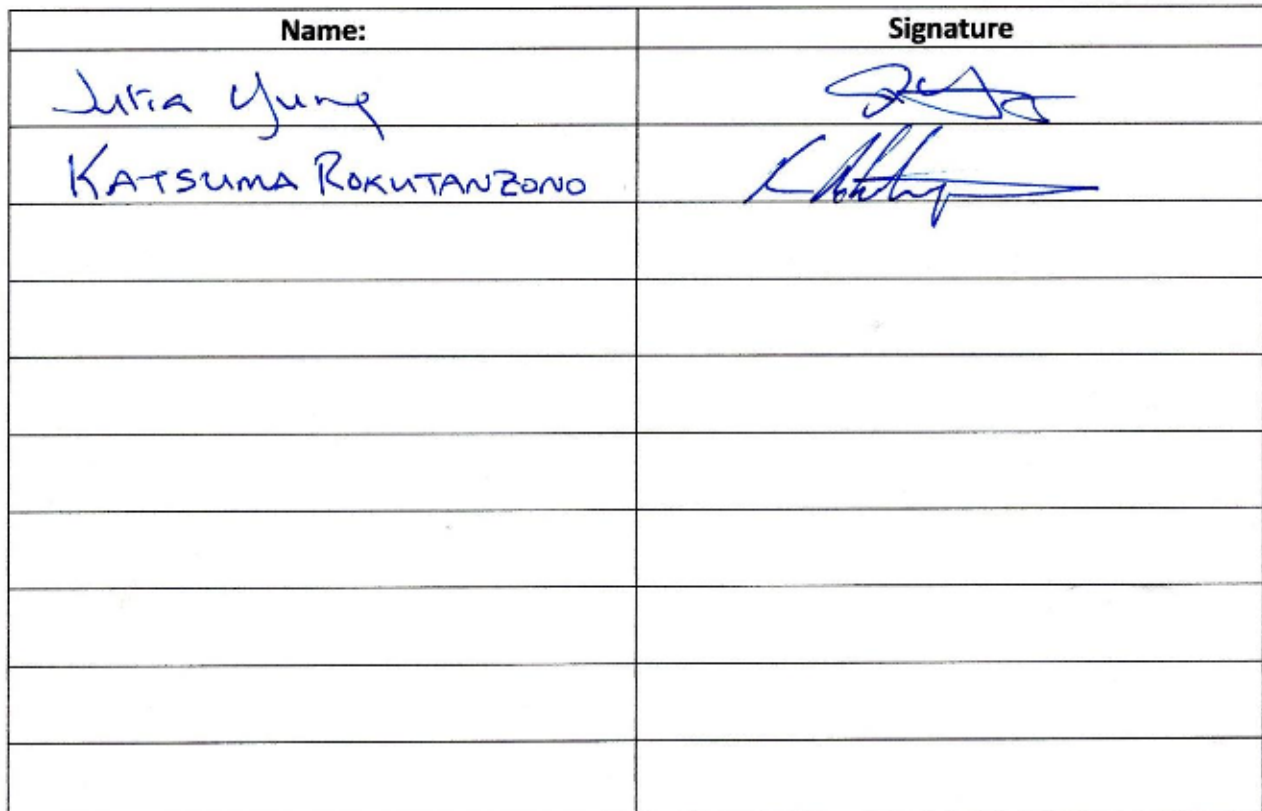 Name: Signature
Julia Yung
KATSUMA ROKUTANZONO